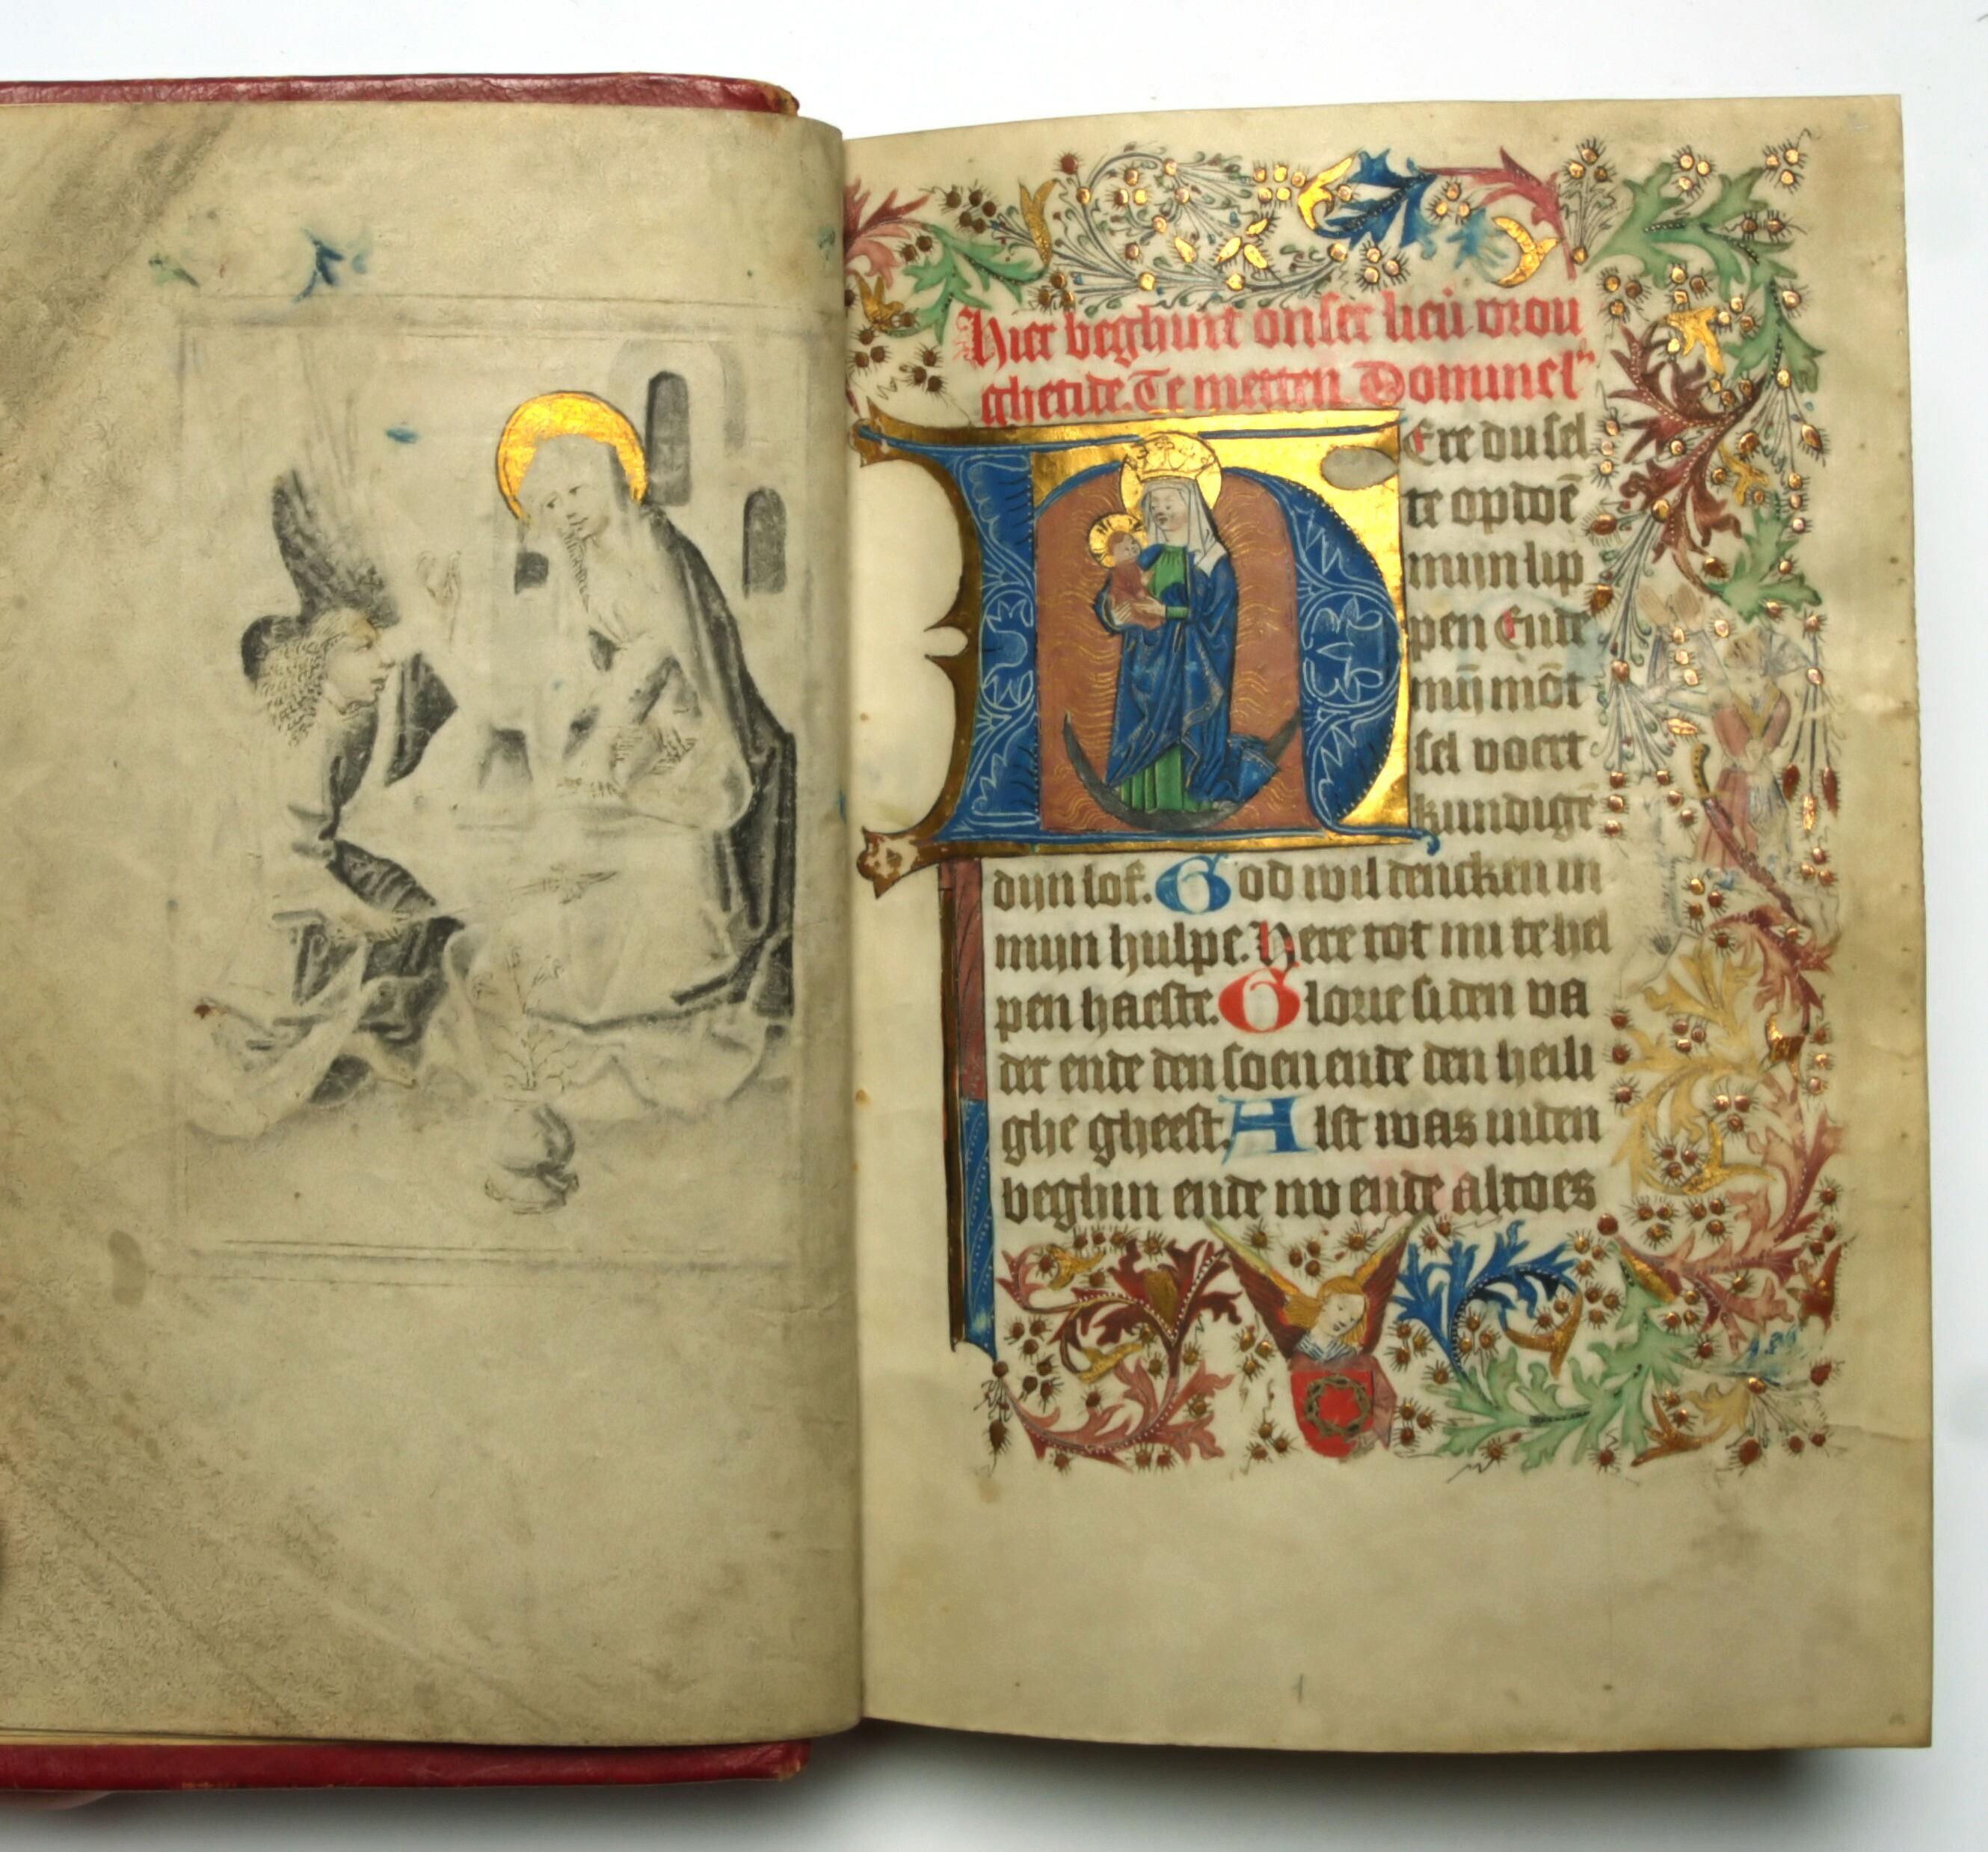 Hier beghint onser lieu vrou
ghetide. Te metten. Domine l
HEre du sel
te opdoē
mijn lip
pen Ende
mij mōt
sel voert
kundigē
dijn lof. God wil dencken in
mijn hulpe. Here tot mi te hel
pen haeste. Glorie si den va
der ende den soen ende den heili
ghe gheest. Alst was inden
beghin ende nv ende altoes